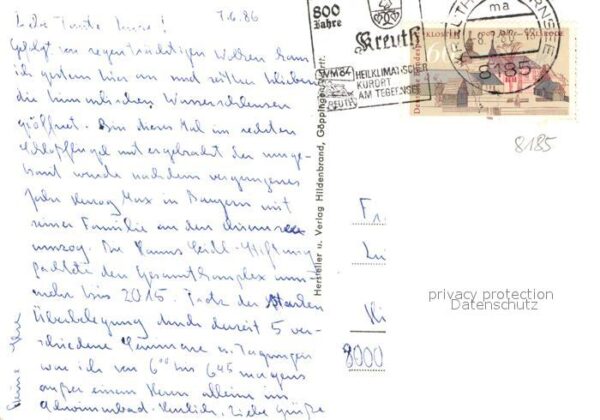 Liebe Tante Luise! 7.6.86
Gefolgt von regenträchtigen Wolken kam
ich gestern hier an und seither blieben
die himmlischen Wasserschleusen
geöffnet. Bin dieses Mal im rechten
Schloßflügel untergebracht der umge-
baut wurde nachdem vergangenes
Jahr Herzog Max in Bayern mit
seiner Familie an den
umzog. Die Hanns Seidl-Stiftung
pachtete den Gesamtkomplex nun-
mehr bis 2015. Trotz der starken
Überbelegung durch derzeit 5 ver-
schiedene Seminare u. Tagungen
war ich von 6⁰⁰ bis 6⁴⁵ morgens
außer einem Herrn alleine im
Schwimmbad. Herzlich, liebe Grüße
Hersteller u. Verlag Hildenbrand, Göppingen
800
Jahre
Kreuth
WM 84
KREUTH
HEILKLIMATISCHER
KURORT
AM TEGERNSEE
KREUTH TEGERNSEE
ma
8185
60
Deutsche Bundespost
8185
8000
privacy protection
Datenschutz